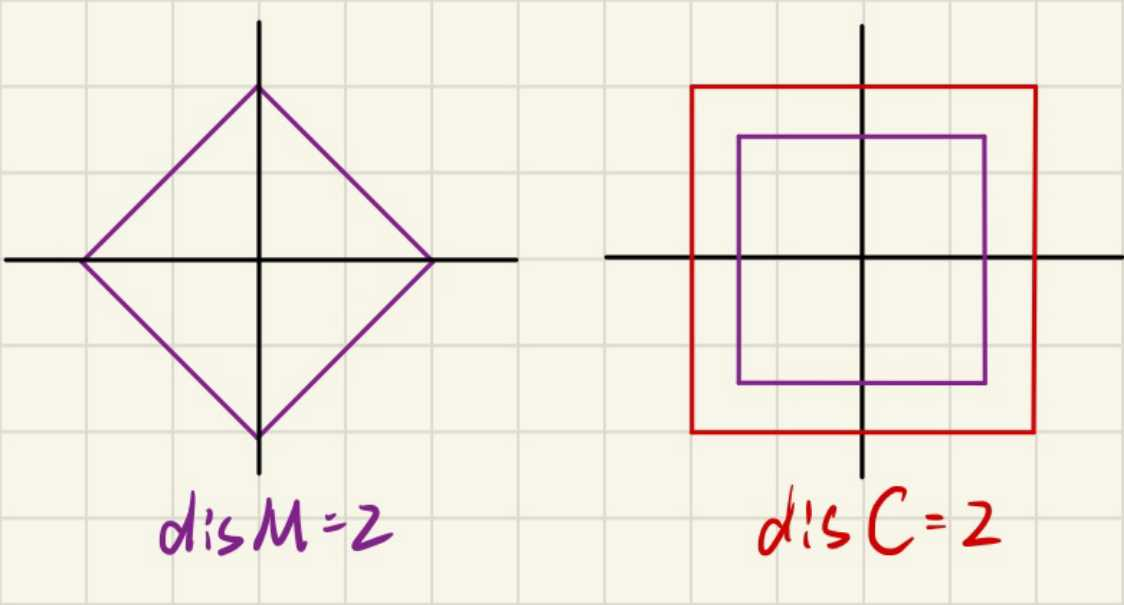 disM=2
disC=2